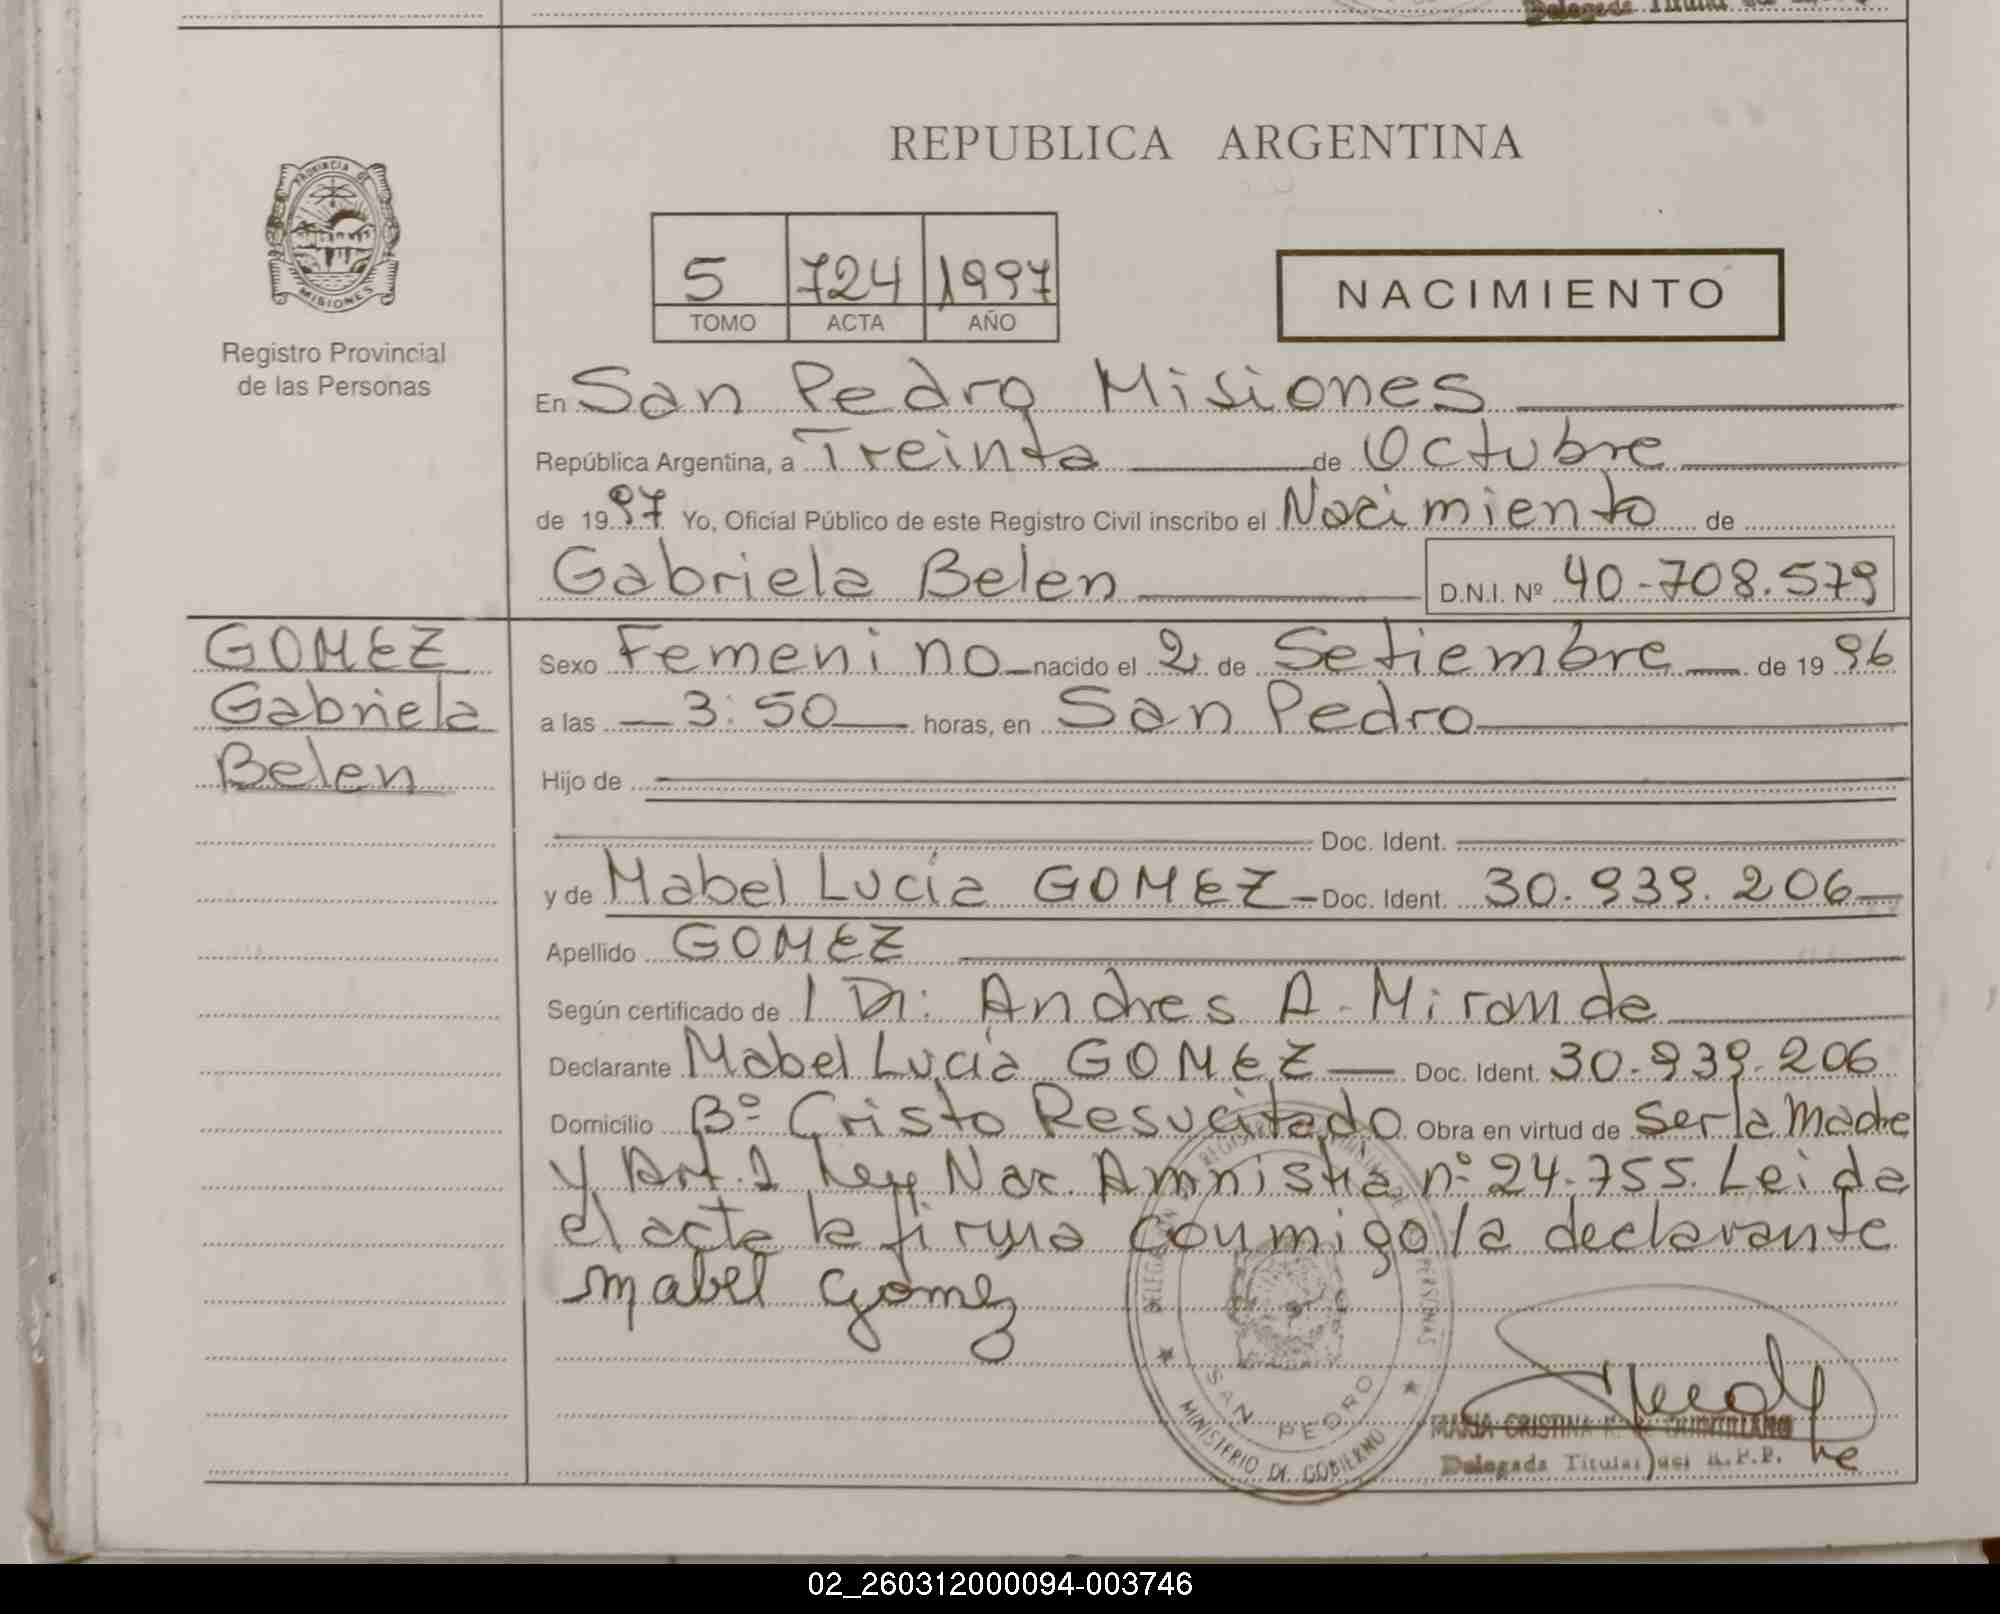 Delegada Titular
REPUBLICA ARGENTINA
PROVINCIA DE
MISIONES
Registro Provincial
de las Personas
5 724 1997
TOMO ACTA AÑO
NACIMIENTO
En San Pedro Misiones
República Argentina, a Treinta de Octubre
de 1997 Yo, Oficial Público de este Registro Civil inscribo el Nacimiento de
Gabriela Belen D.N.I. Nº 40-708.579
GOMEZ
Gabriela
Belen
Sexo Femenino nacido el 2 de Setiembre de 1996
a las 3:50 horas, en San Pedro
Hijo de
Doc. Ident.
y de Mabel Lucía GOMEZ Doc. Ident. 30.939.206
Apellido GOMEZ
Según certificado de Dr: Andres A. Miranda
Declarante Mabel Lucía GOMEZ Doc. Ident. 30.939.206
Domicilio Bº Cristo Resucitado Obra en virtud de ser la Madre
y Art. 1 Ley Nac. Amnistia nº 24.755. Leida
el acta la firma conmigo la declarante
Mabel Gómez
SAN PEDRO
MINISTERIO DE GOBIERNO
MARIA CRISTINA
Delegada Titular del R.P.P.
02_260312000094-003746